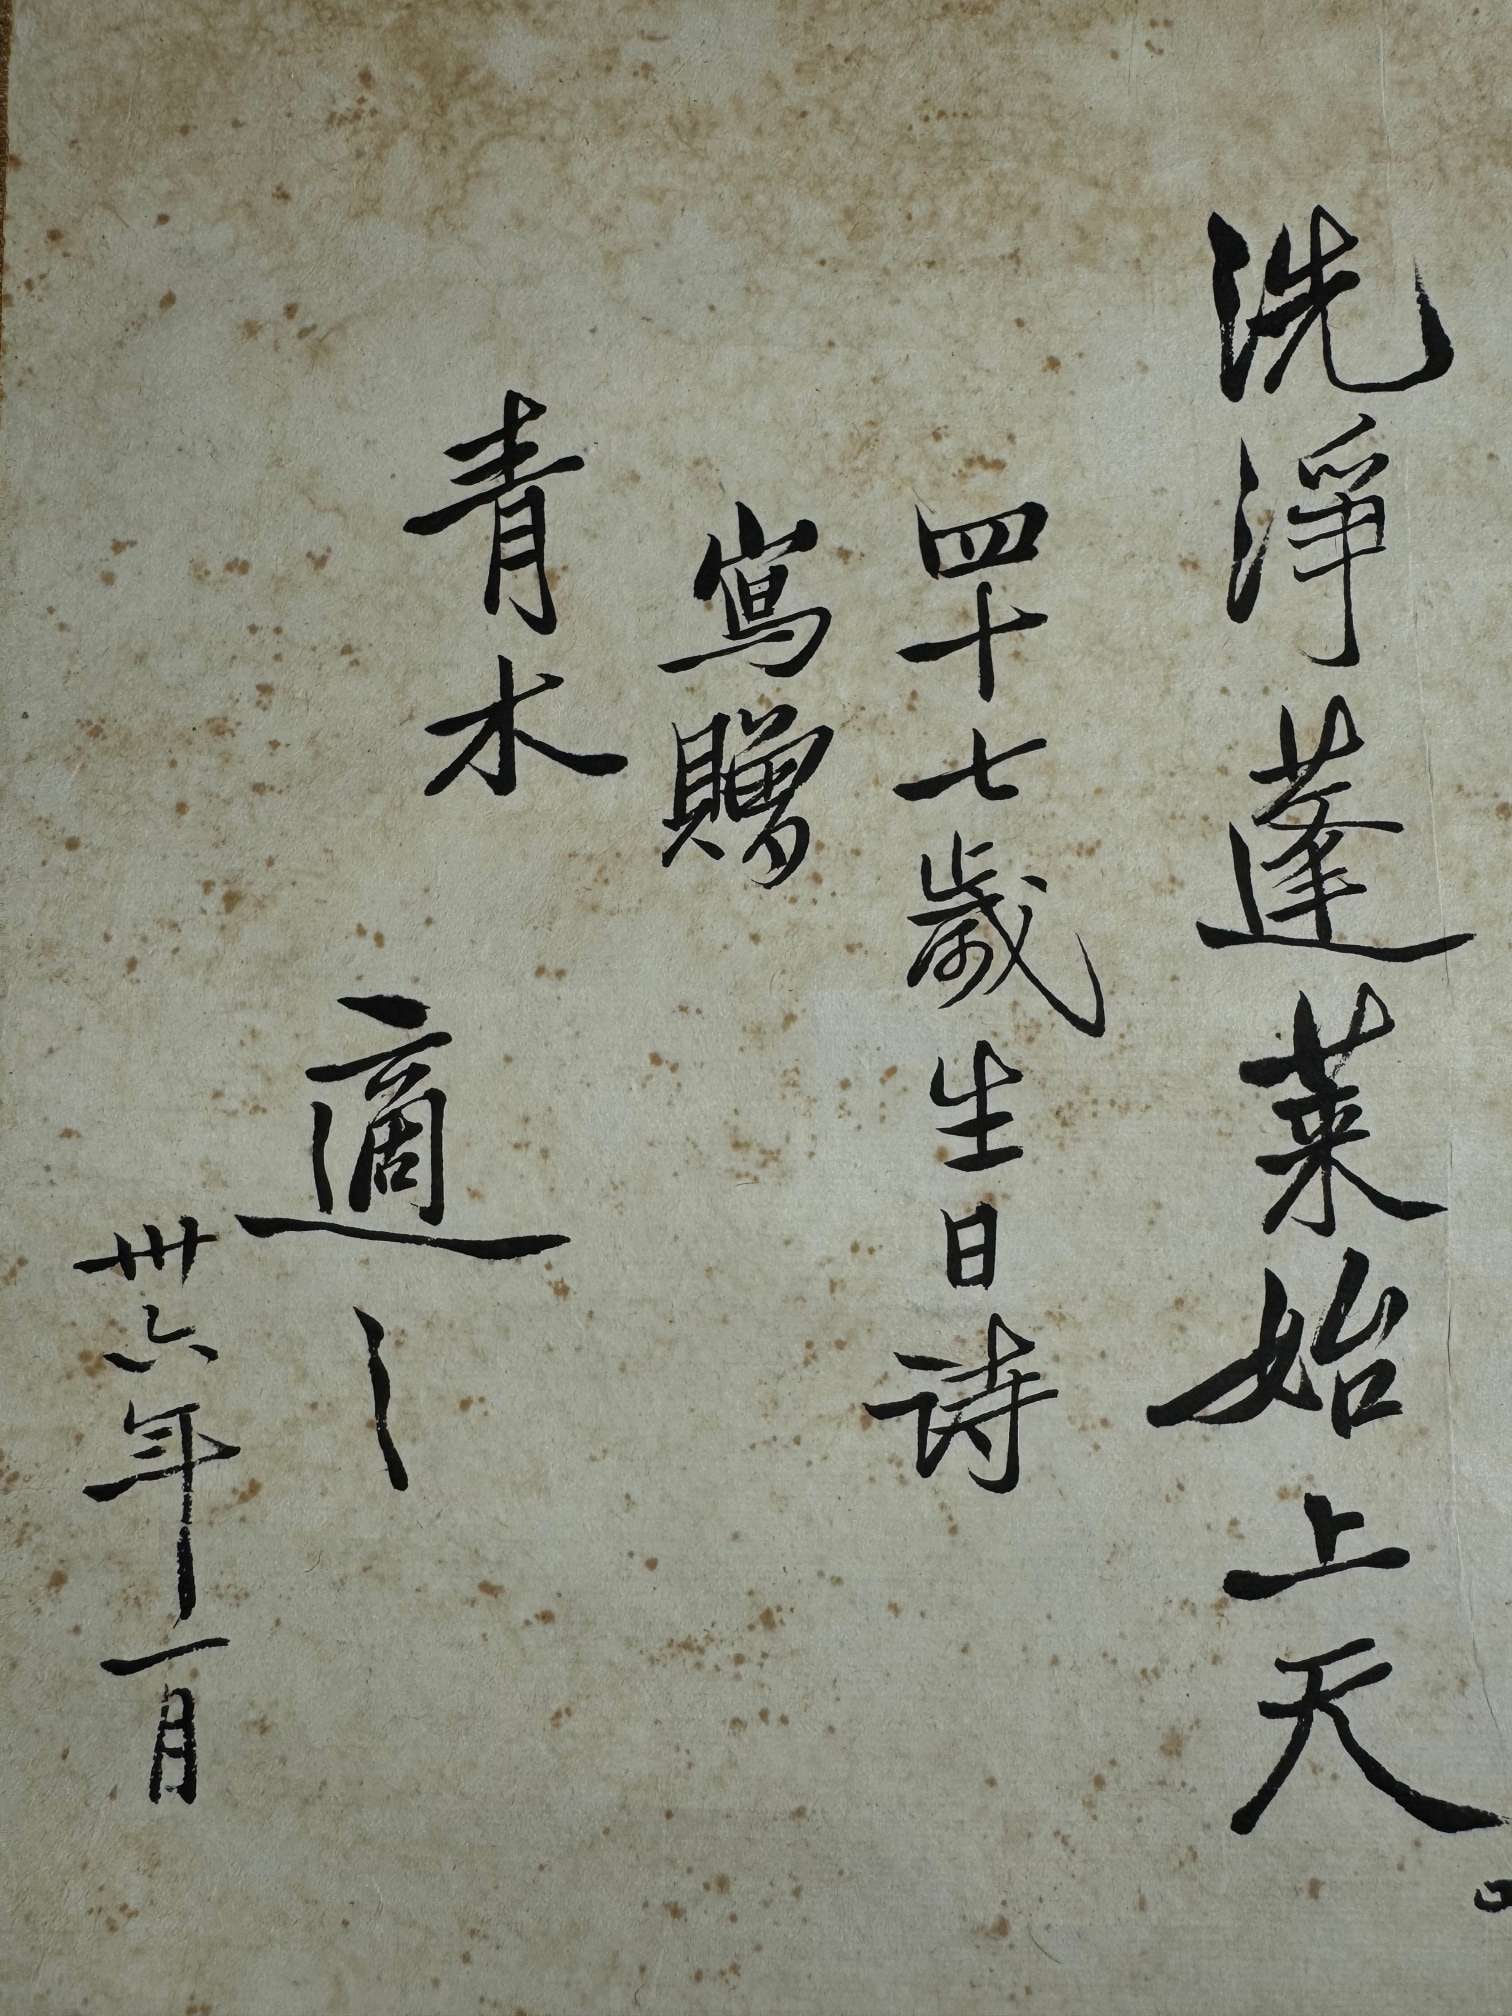 洗淨蓬萊始上天。
四十七歲生日詩
寫贈
青木
適之
卅六年一月